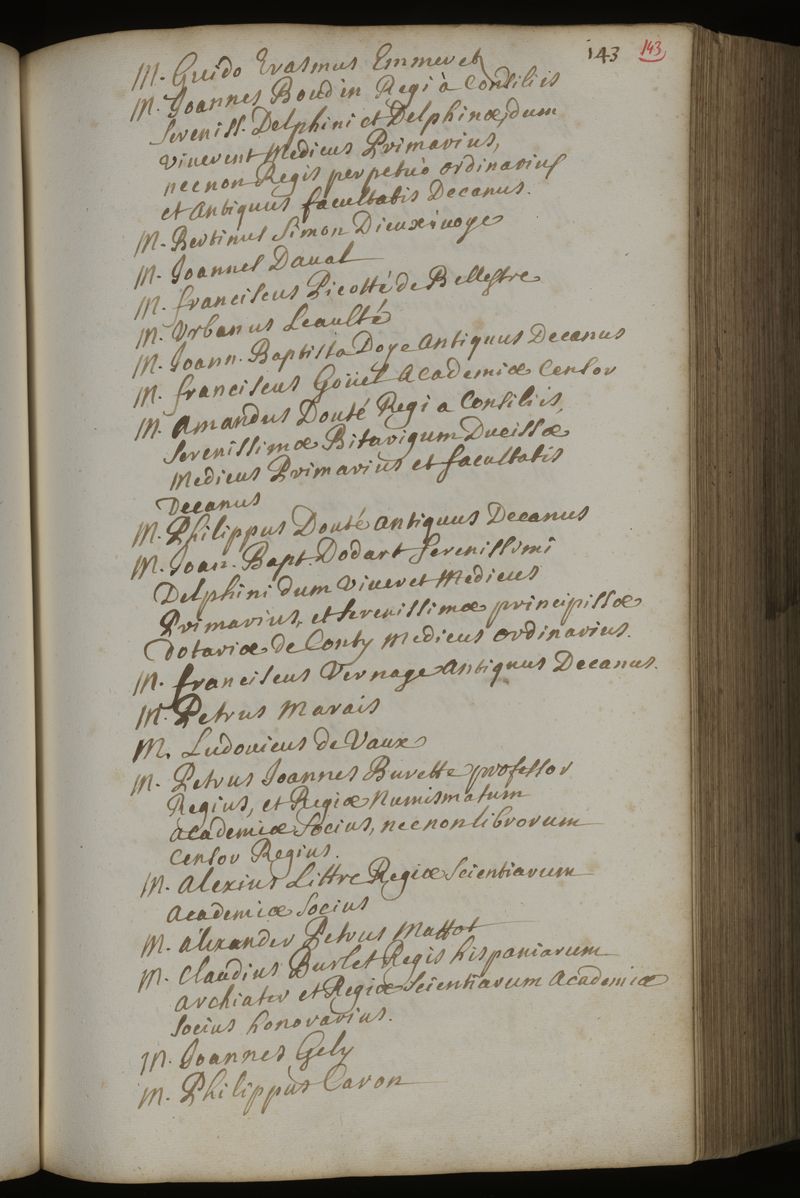 143 143
M. Guido Erasmus Emmerets
M. Joannes Boudin Regi à Consiliis
Sereniss. Delphini et Delphinæ, dum
viverent Medicus Primarius,
necnon Regis perpetuò ordinarius
et Antiquus facultatis Decanus.
M. Bertinus Simon Dieuxivoye
M. Joannes Daval
M. franciscus Picotté de Bellestre
M. Vrbanus Leaulté
M. Joann. Baptista Doye Antiquus Decanus
M. franciscus Goüel Academiæ Censor
M. Amandus Douté Regi a Consiliis,
Serenissimæ Biturigum Ducissæ
Medicus Primarius et facultatis
Decanus
M. Philippus Douté antiquus Decanus
M. Joan. Bapt. Dodart Serenissimi
Delphini dum viveret Medicus
Primarius, et serenissimæ principissæ
dotariæ de Conty Medicus ordinarius.
M. franciscus Vernage Antiquus Decanus.
M. Petrus Marais
M. Ludovicus de Vaux
M. Petrus Joannes Burette professor
Regius, et Regiæ Numismatum
academiæ Socius, necnon librorum
Censor Regius.
M. Alexius Littre Regiæ Scientiarum
Academiæ Socius
M. alexander Petrus Mattot
M. Claudius Burlet Regis hispaniarum
archiater et Regiæ Scientiarum Academiæ
Socius honorarius.
M. Joannes Gely
M. Philippus Caron